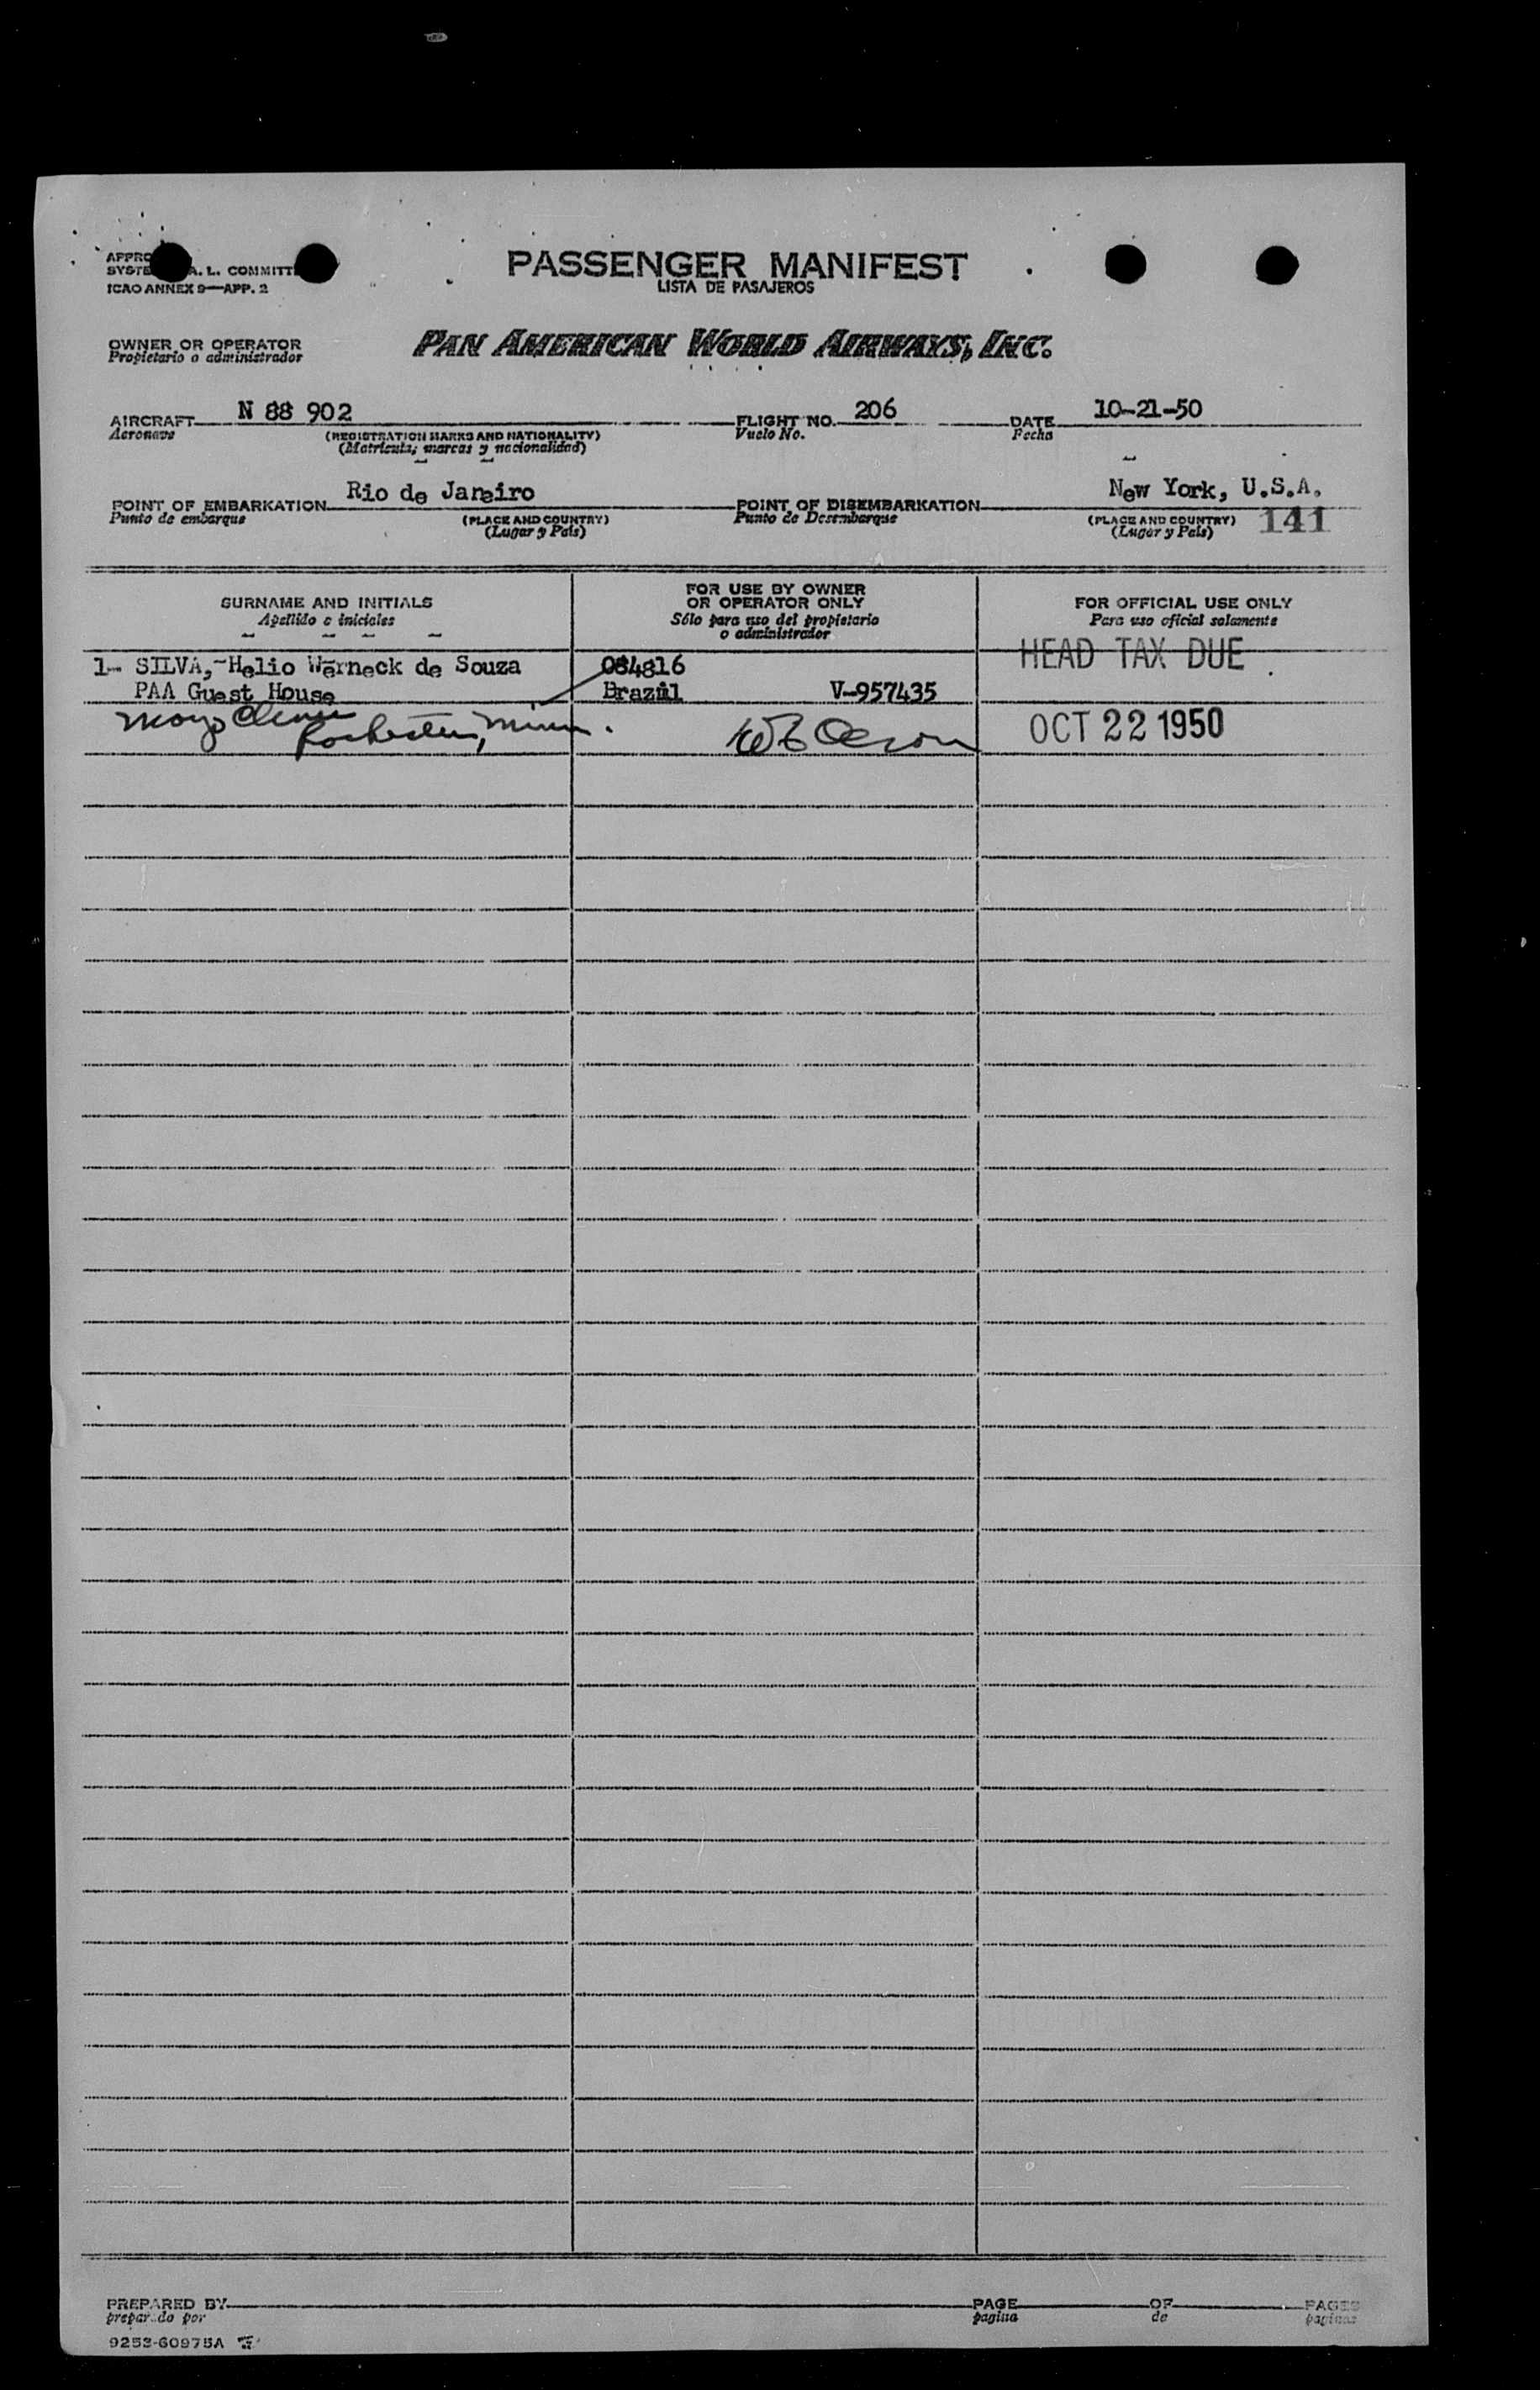 APPRO
SYSTE A. L. COMMITT
ICAO ANNEX 9—APP. 2
PASSENGER MANIFEST
LISTA DE PASAJEROS
OWNER OR OPERATOR
Propietario o administrador
PAN AMERICAN WORLD AIRWAYS, INC.
AIRCRAFT N 88 902 FLIGHT NO. 206 DATE 10-21-50
Aeronave (REGISTRATION MARKS AND NATIONALITY) Vuelo No. Fecha
(Matricula, marcas y nacionalidad)
POINT OF EMBARKATION Rio de Janeiro POINT OF DISEMBARKATION New York, U.S.A.
Punto de embarque (PLACE AND COUNTRY) Punto de Desembarque (PLACE AND COUNTRY) 141
(Lugar y País) (Lugar y País)
SURNAME AND INITIALS FOR USE BY OWNER OR OPERATOR ONLY FOR OFFICIAL USE ONLY
Apellido e iniciales Sólo para uso del propietario o administrador Para uso oficial solamente
1- SILVA,-Helio Werneck de Souza 084816 HEAD TAX DUE
PAA Guest House Brazil V-957435
Mayo Clinic Rochester, Minn. OCT 22 1950
PREPARED BY PAGE OF PAGES
preparado por pagina de paginas
9253-60975A